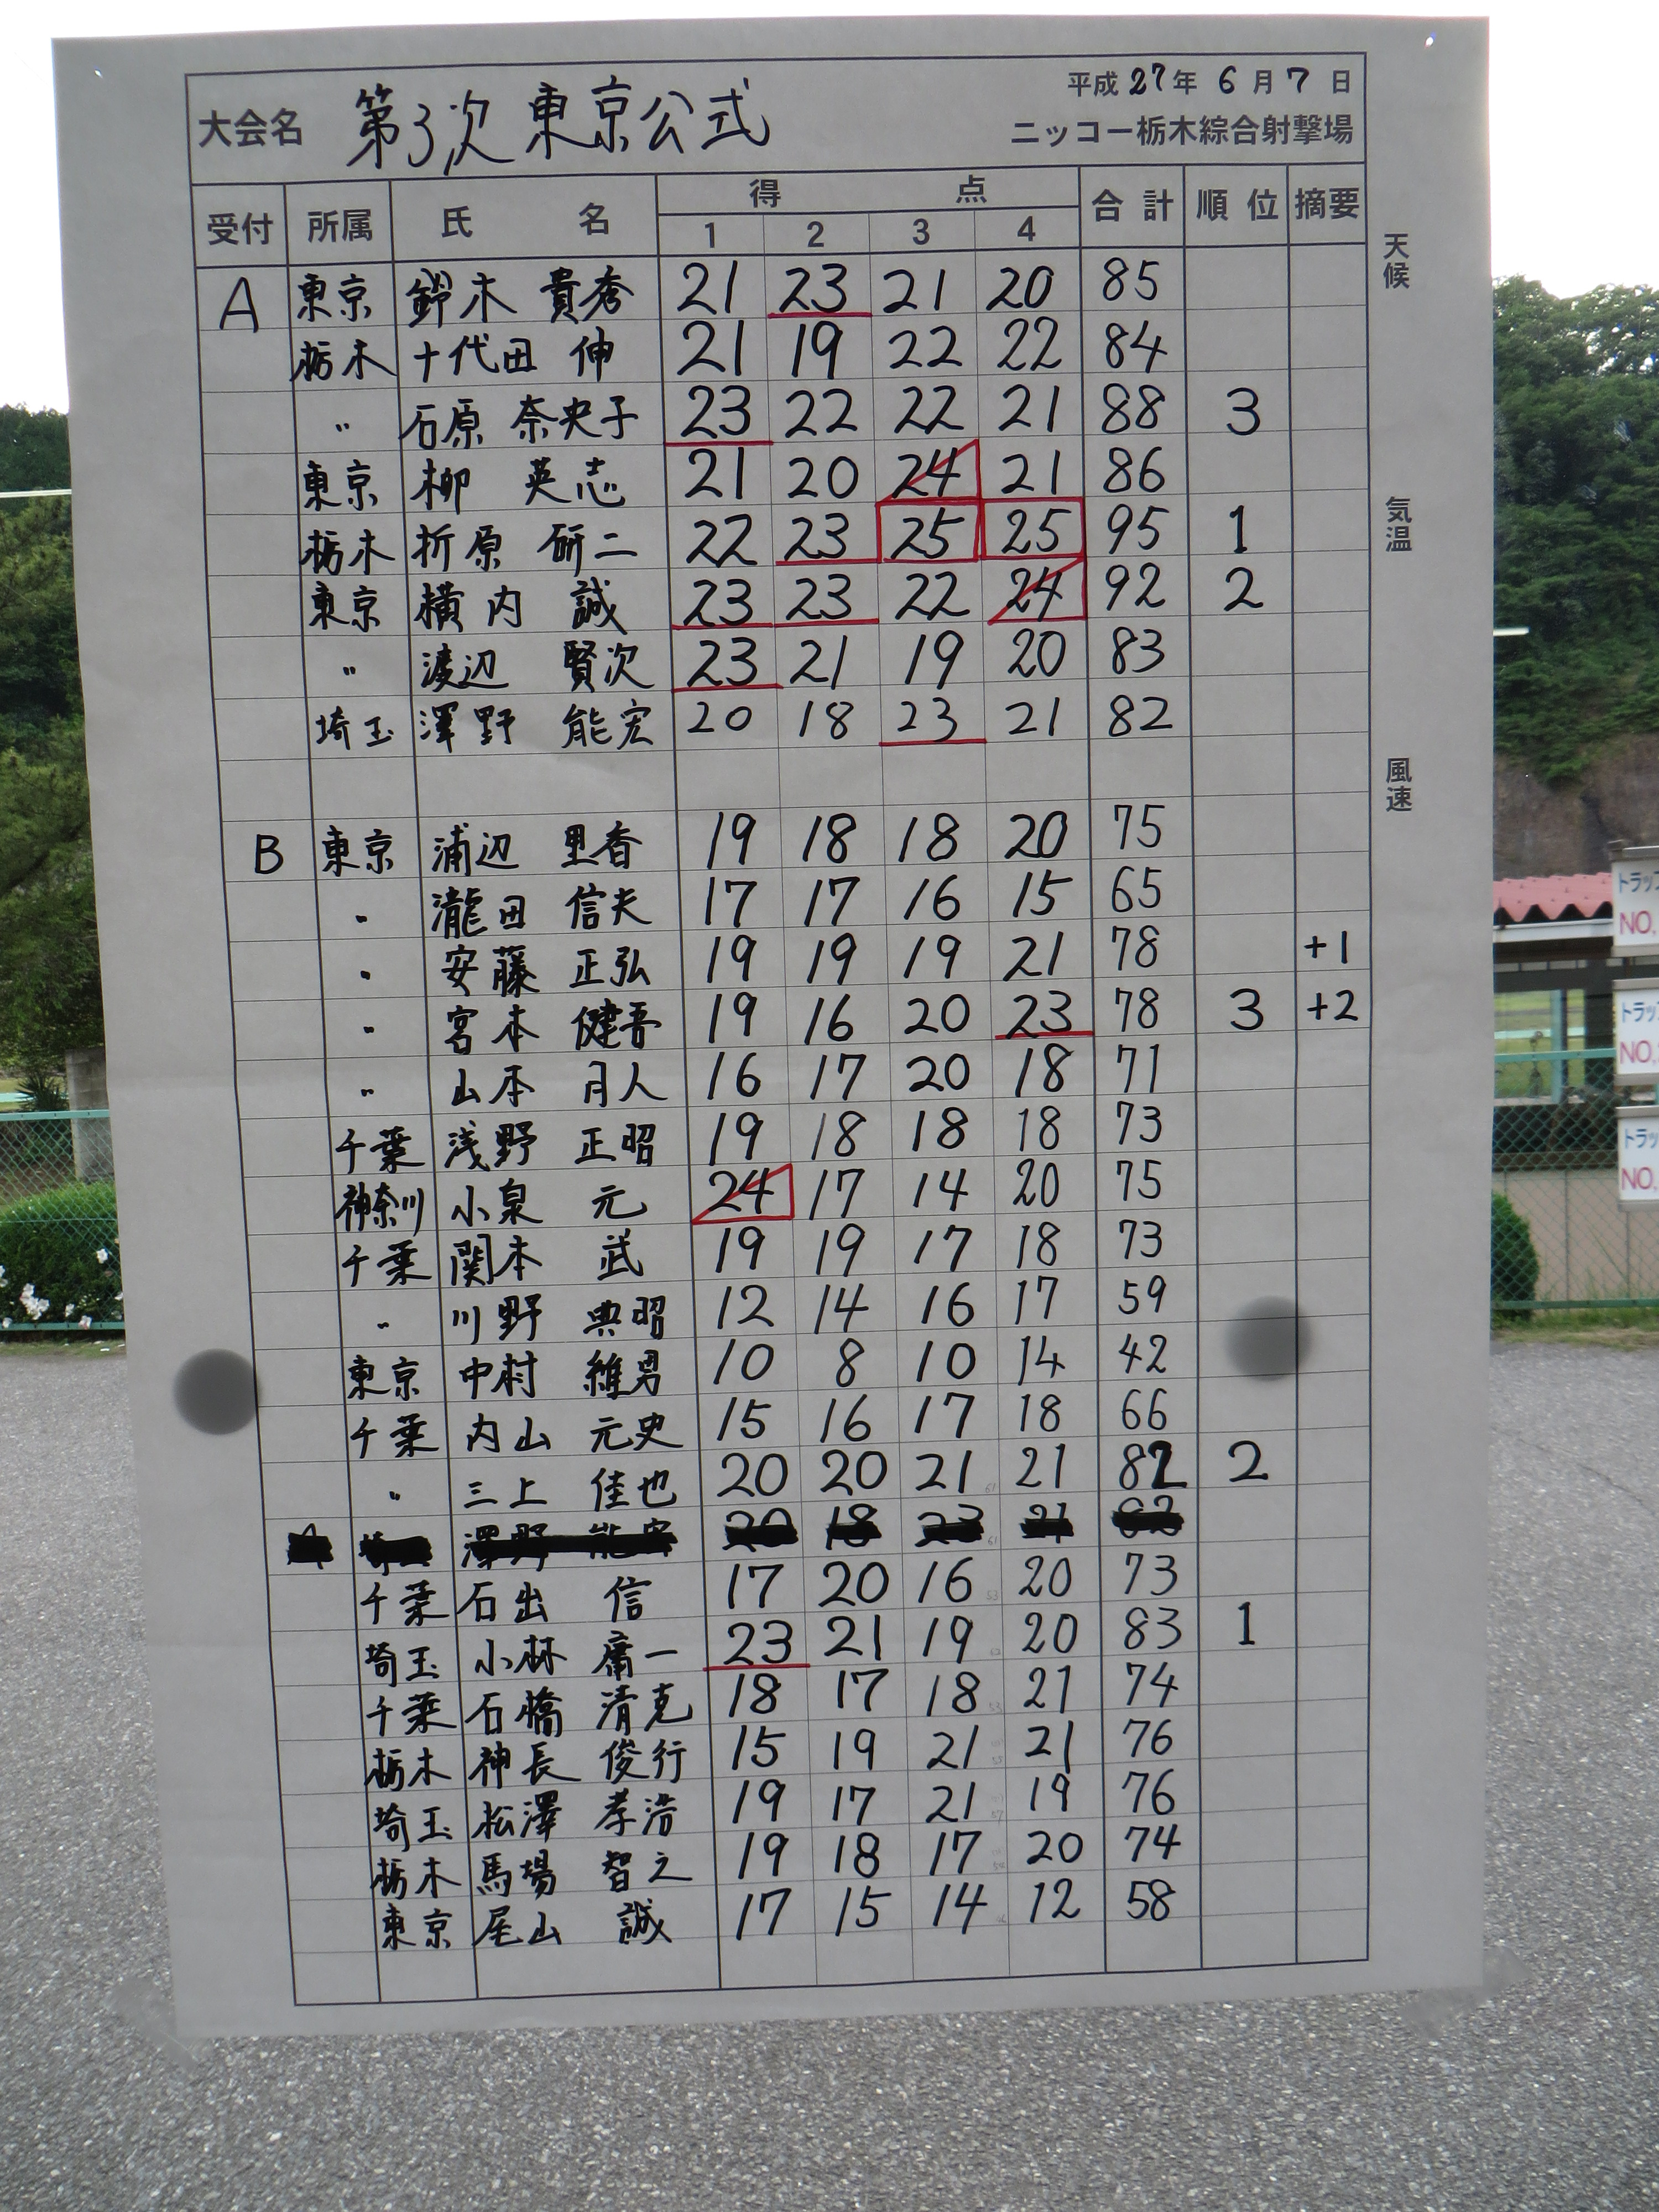 平成 27年 6月 7日
大会名 第3次 東京公式
ニッコー栃木綜合射撃場
受付 所属 氏名 得点 合計 順位 摘要
1 2 3 4
A 東京 鈴木 貴秀 21 23 21 20 85
栃木 十代田 伸 21 19 22 22 84
〃 石原 奈央子 23 22 22 21 88 3
東京 柳 英志 21 20 24 21 86
栃木 折原 研二 22 23 25 25 95 1
東京 横内 誠 23 23 22 24 92 2
〃 渡辺 賢次 23 21 19 20 83
埼玉 澤野 能宏 20 18 23 21 82
B 東京 浦辺 里香 19 18 18 20 75
〃 瀧田 信夫 17 17 16 15 65
〃 安藤 正弘 19 19 19 21 78 +1
〃 宮本 健吾 19 16 20 23 78 3 +2
〃 山本 月人 16 17 20 18 71
千葉 浅野 正昭 19 18 18 18 73
神奈川 小泉 元 24 17 14 20 75
千葉 関本 武 19 19 17 18 73
〃 川野 典昭 12 14 16 17 59
東京 中村 維男 10 8 10 14 42
千葉 内山 元史 15 16 17 18 66
〃 三上 佳也 20 20 21 21 82 2
千葉 石出 信 17 20 16 20 73
埼玉 小林 庸一 23 21 19 20 83 1
千葉 石橋 清克 18 17 18 21 74
栃木 神長 俊行 15 19 21 21 76
埼玉 松澤 孝浩 19 17 21 19 76
栃木 馬場 智之 19 18 17 20 74
東京 尾山 誠 17 15 14 12 58
天候
気温
風速
トラップ
NO.
トラッ
NO.
トラッ
NO.